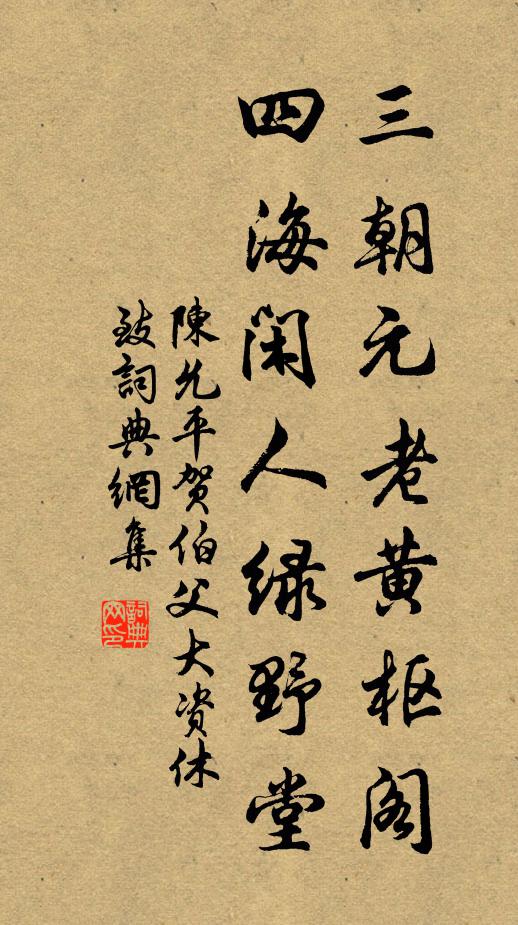 三朝元老黄枢阁
四海闲人绿野堂
陳允平贺伯父大资休
致詞典網集
詞典
网印